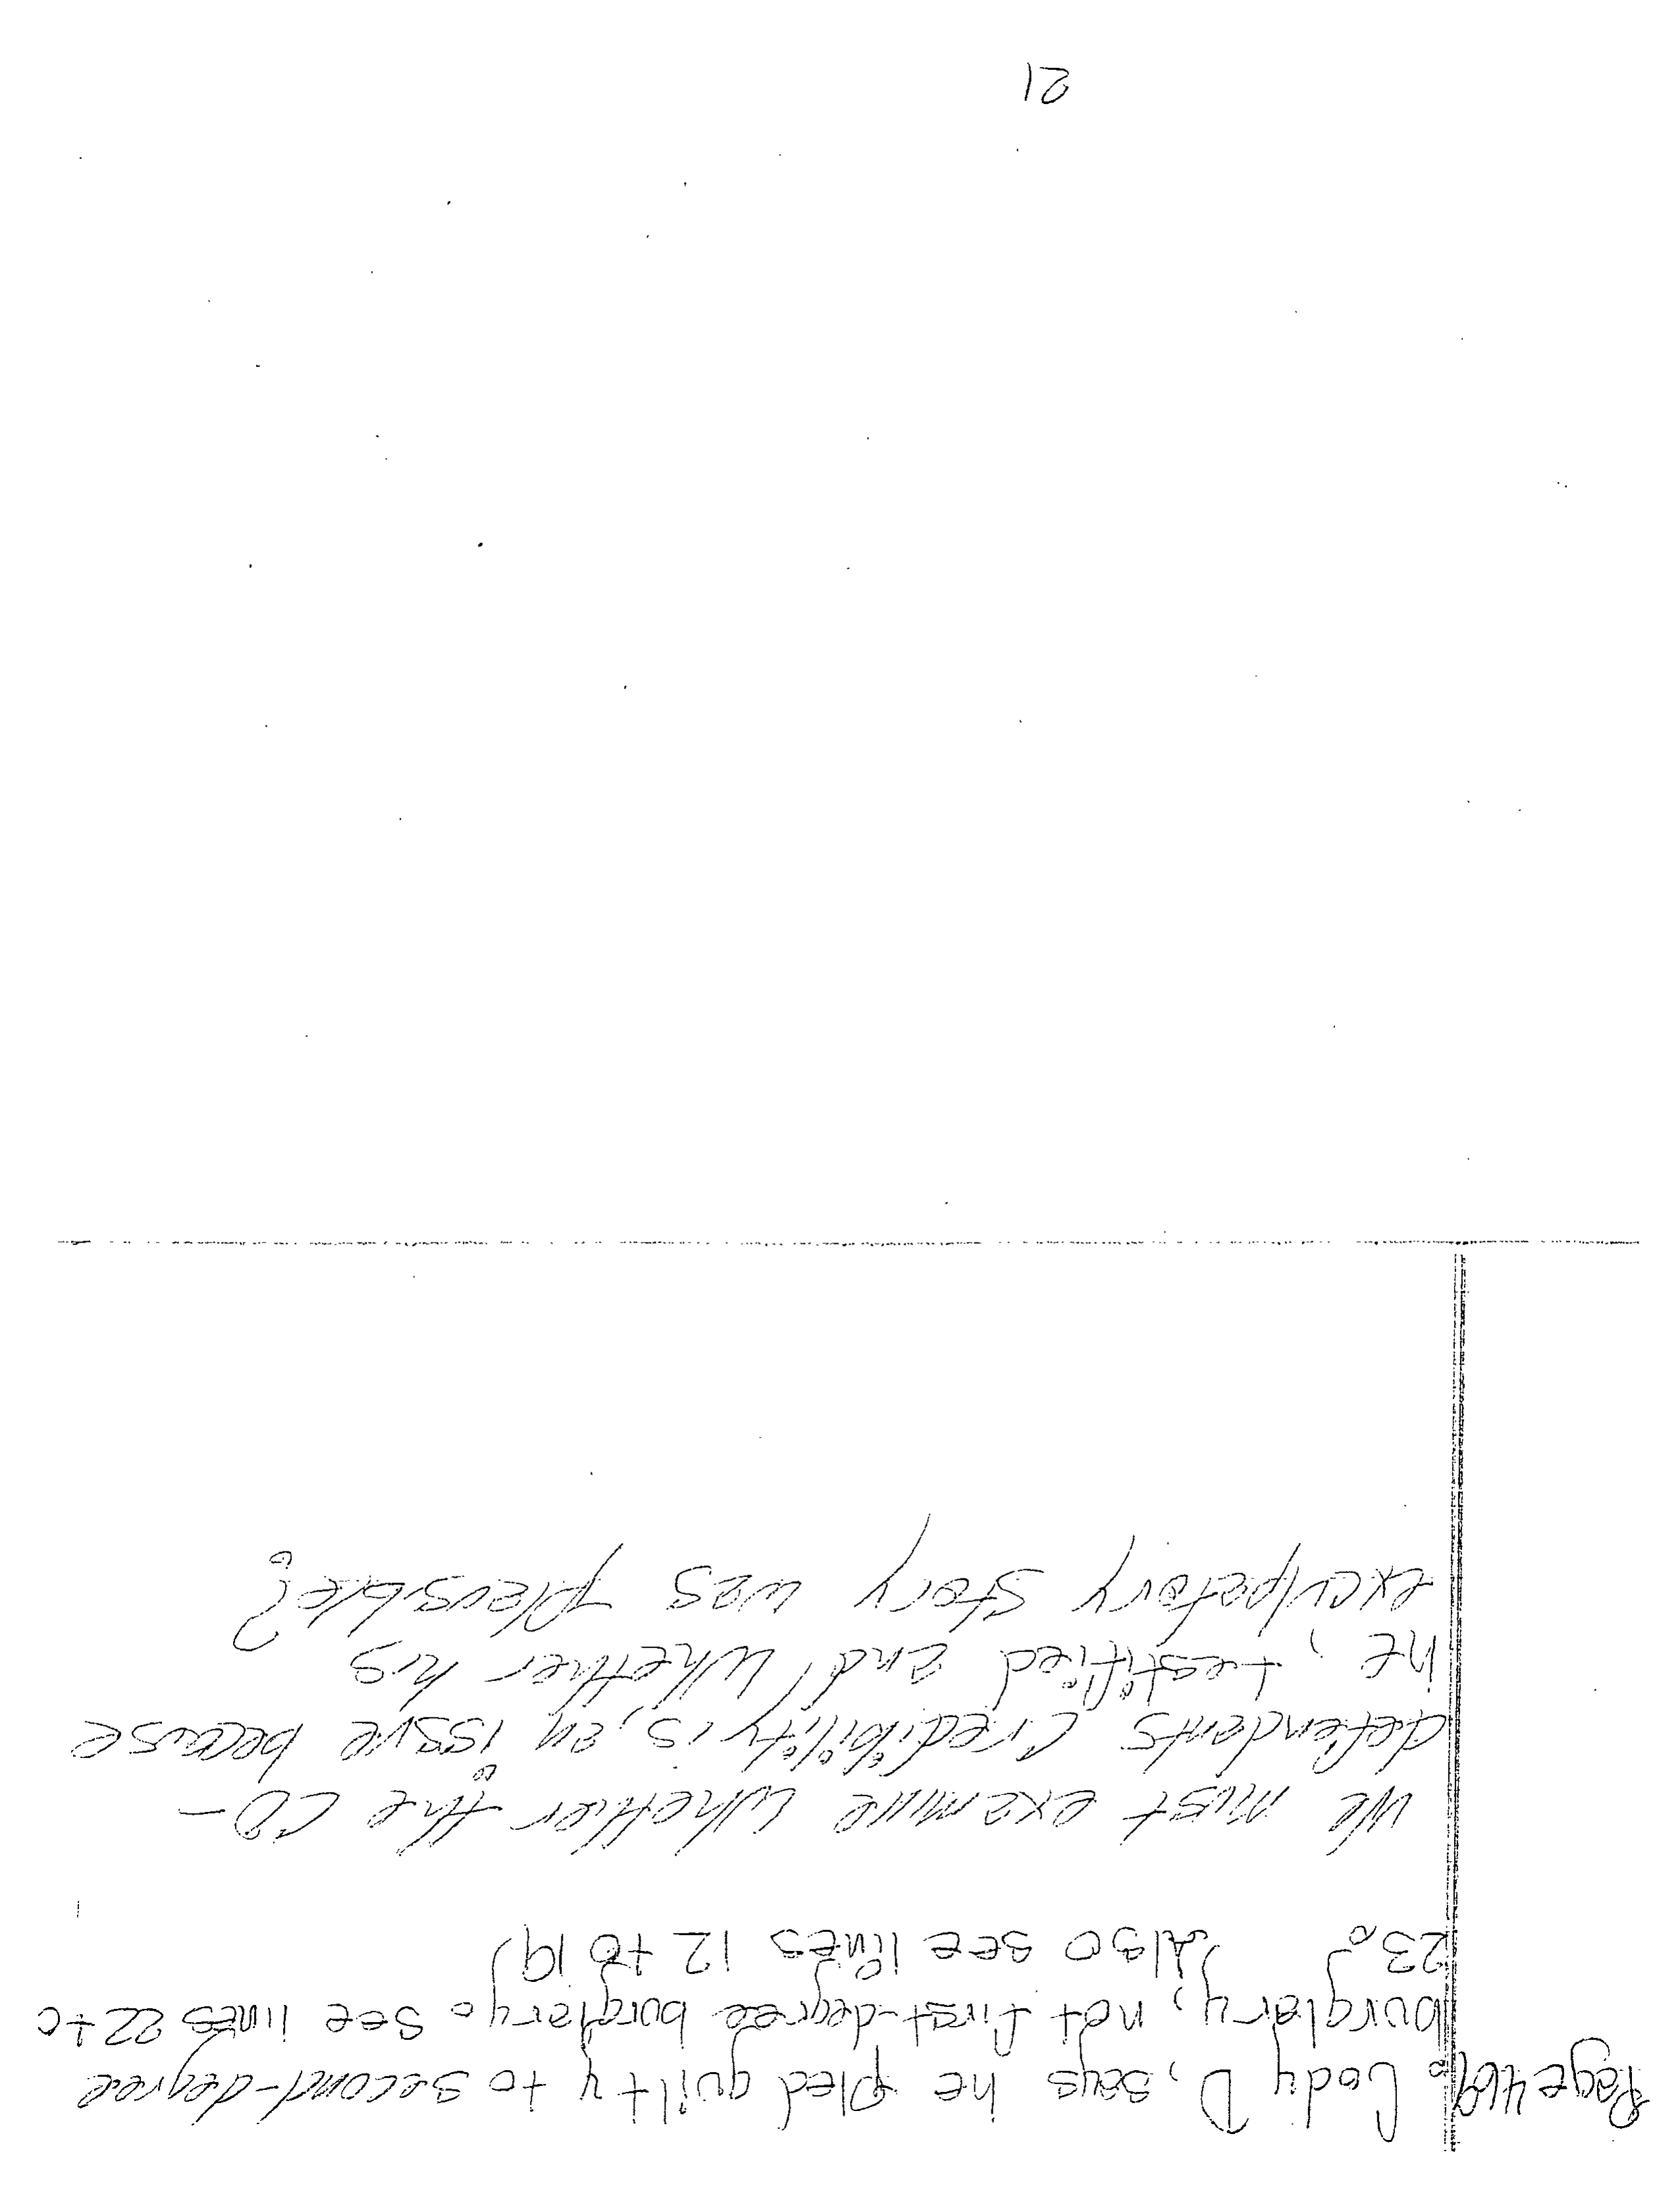 Page 469. Cody D, says he pled guilty to second-degree
burglary, not first-degree burglary. See lines 22 to
23. Also see lines 12 to 19)
We must examine whether the co-
defendants credibility is, an issue because
he, testified and whether his
exculpatory story was plausible?
21